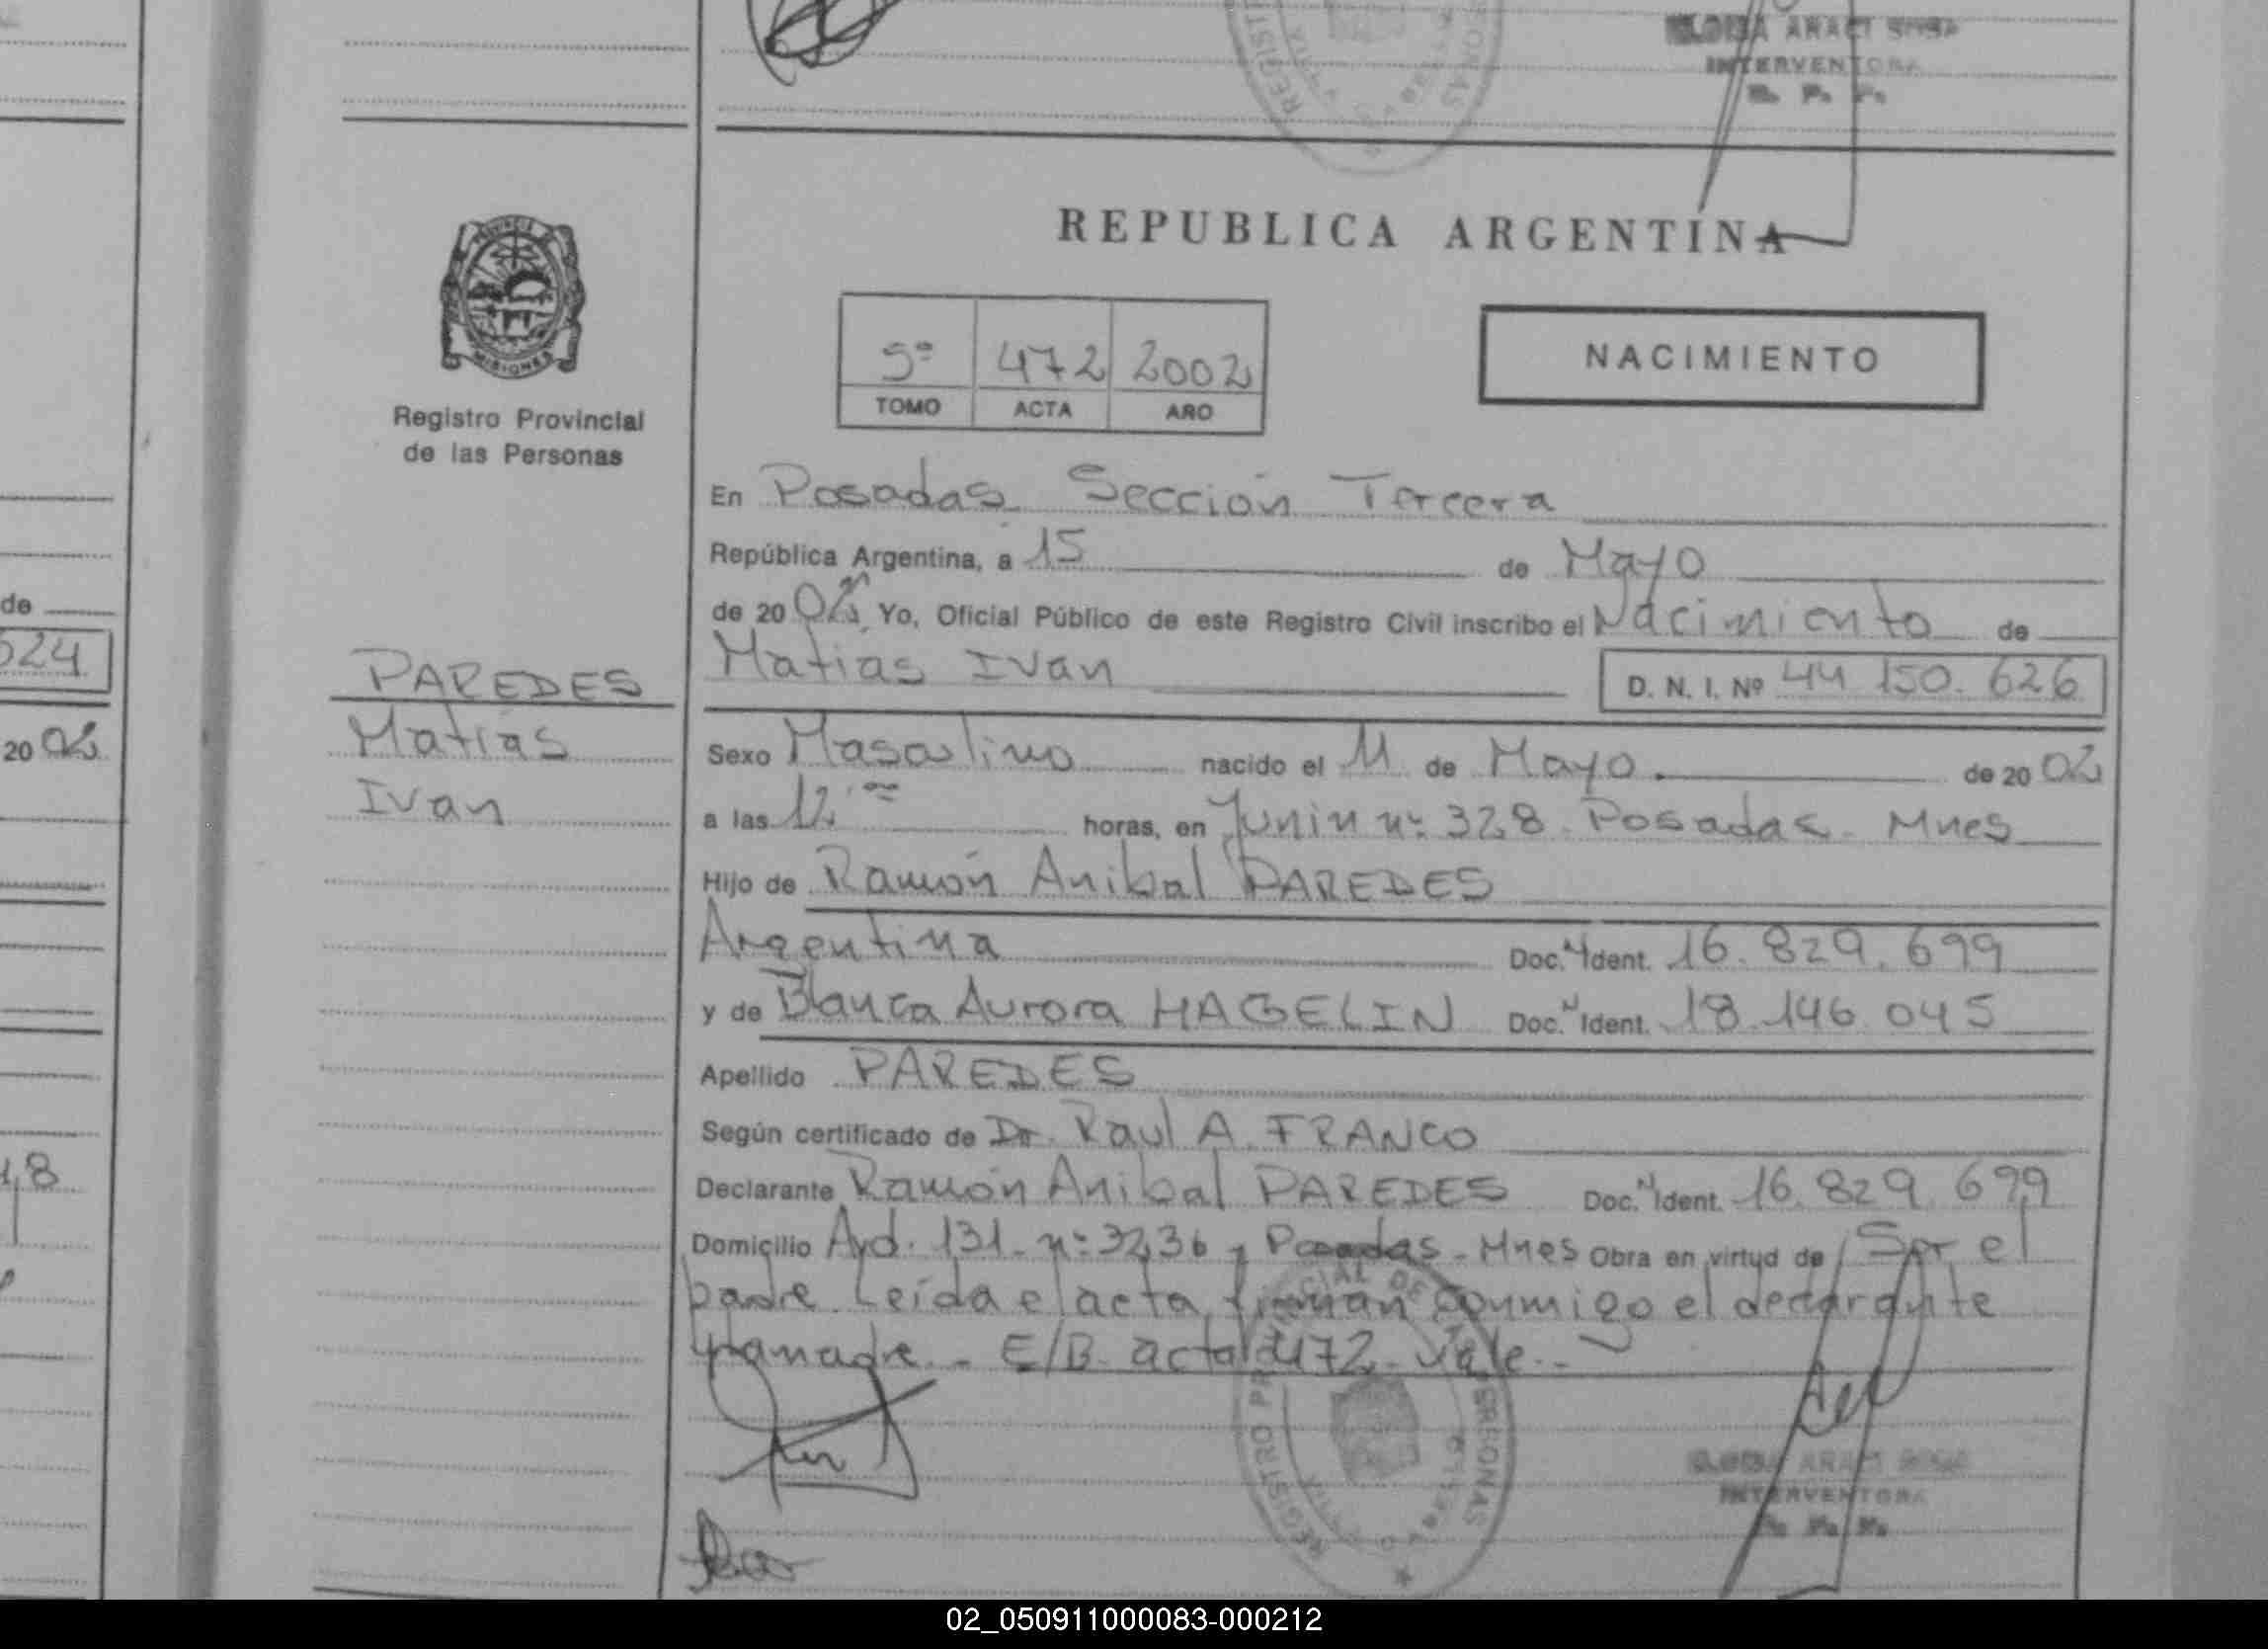 ARACI SOSA
INTERVENTORA
R. P. P.
REPUBLICA ARGENTINA
MISIONES
Registro Provincial
de las Personas
5º 472 2002
TOMO ACTA AÑO
NACIMIENTO
En Posadas Sección Tercera
República Argentina, a 15 de Mayo
de 2002, Yo, Oficial Público de este Registro Civil inscribo el Nacimiento de
Matias Ivan D. N. I. Nº 44 150. 626
de
624
PAREDES
Matias
Ivan
20 02
Sexo Masculino nacido el 11 de Mayo. de 20 02
a las 12 horas, en Junin nº 328. Posadas. Mnes
Hijo de Ramón Anibal PAREDES
Argentina Doc. Ident. 16. 829. 699
y de Blanca Aurora HAGELIN Doc. Ident. 18.146 045
Apellido PAREDES
Según certificado de Dr. Raul A. FRANCO
Declarante Ramón Anibal PAREDES Doc. Ident. 16. 829. 699
Domicilio Avd. 131 - nº 3236, Posadas - Mnes Obra en virtud de Ser el
padre. Leída el acta firman conmigo el declarante
E/B. acta 472 - Vale. -
REGISTRO PROVINCIAL DE LAS PERSONAS
INTERVENTORA
02_050911000083-000212